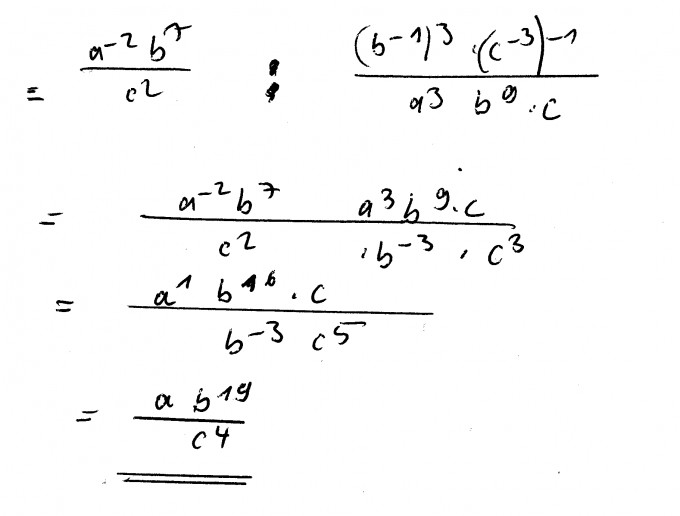 = \frac{a^{-2} b^7}{c^2} : \frac{(b^{-1})^3 \cdot (c^{-3})^{-1}}{a^3 b^9 \cdot c}
= \frac{a^{-2} b^7 \quad a^3 b^9 \cdot c}{c^2 \cdot b^{-3} \cdot c^3}
= \frac{a^1 b^{16} \cdot c}{b^{-3} c^5}
= \frac{a b^{19}}{c^4}